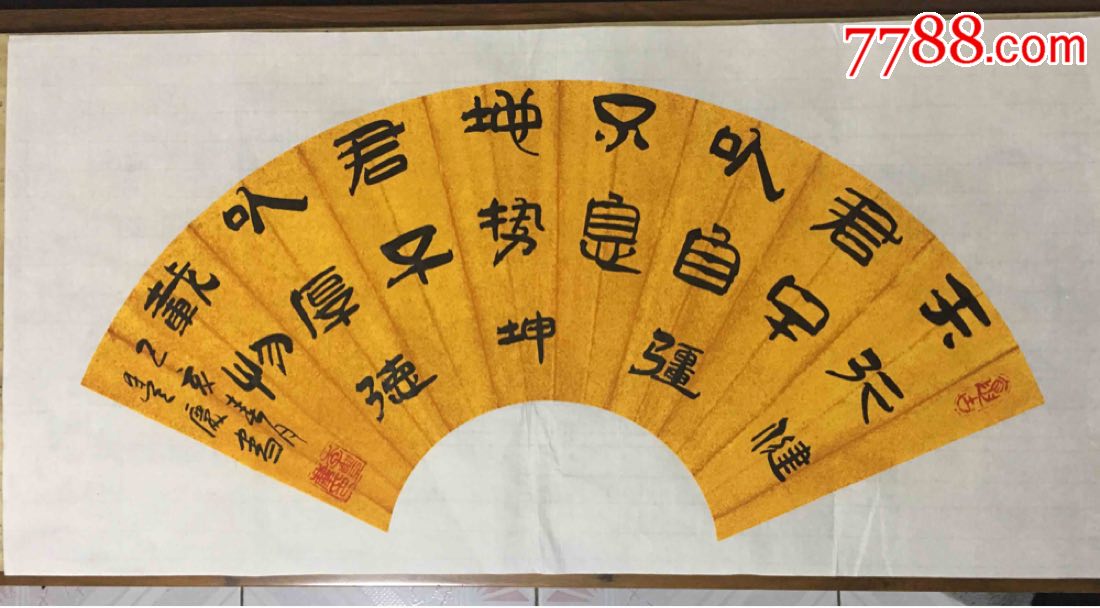 7788.com
天行健
君子
以自彊
不息
地势坤
君子
以厚德
載物
乙亥月
書